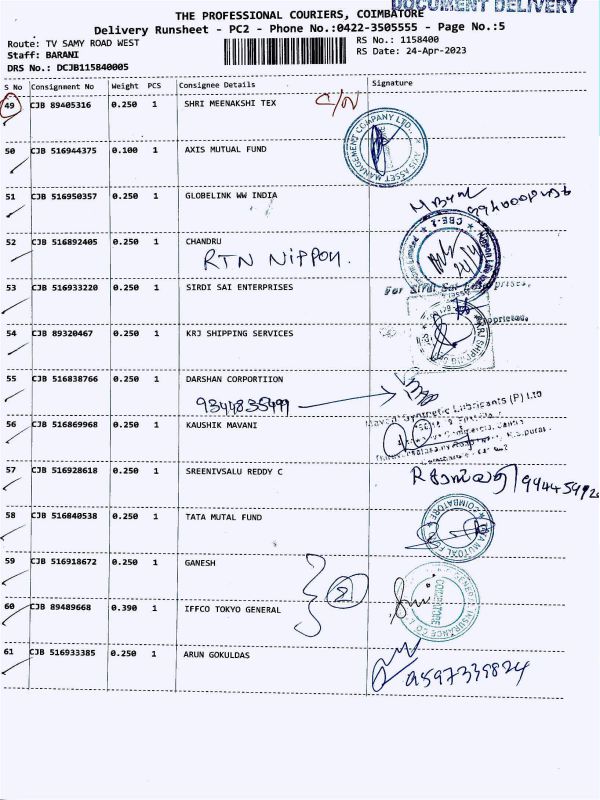 DOCUMENT DELIVERY
THE PROFESSIONAL COURIERS, COIMBATORE
Delivery Runsheet - PC2 - Phone No.:0422-3505555 - Page No.:5
Route: TV SAMY ROAD WEST
RS No.: 1158400
Staff: BARANI
RS Date: 24-Apr-2023
DRS No.: DCJB115840005
S No Consignment No Weight PCS Consignee Details Signature
49 CJB 89405316 0.250 1 SHRI MEENAKSHI TEX
50 CJB 516944375 0.100 1 AXIS MUTUAL FUND
AXIS ASSET MANAGEMENT COMPANY LTD.
51 CJB 516950357 0.250 1 GLOBELINK WW INDIA
52 CJB 516892405 0.250 1 CHANDRU
RTN NIPPON.
CBE-2
53 CJB 516933220 0.250 1 SIRDI SAI ENTERPRISES
For Sirdi Sai Enterprises,
Proprietor.
54 CJB 89320467 0.250 1 KRJ SHIPPING SERVICES
KRJ SHIPPING
55 CJB 516838766 0.250 1 DARSHAN CORPORTIION
9344835499
Synthetic Lubricants (P) Ltd
56 CJB 516869968 0.250 1 KAUSHIK MAVANI
57 CJB 516928618 0.250 1 SREENIVSALU REDDY C
58 CJB 516840538 0.250 1 TATA MUTAL FUND
TATA MUTUAL FUND
COIMBATORE
59 CJB 516918672 0.250 1 GANESH
2
60 CJB 89489668 0.390 1 IFFCO TOKYO GENERAL
GENERAL INSURANCE CO.
COIMBATORE
61 CJB 516933385 0.250 1 ARUN GOKULDAS
9597339824